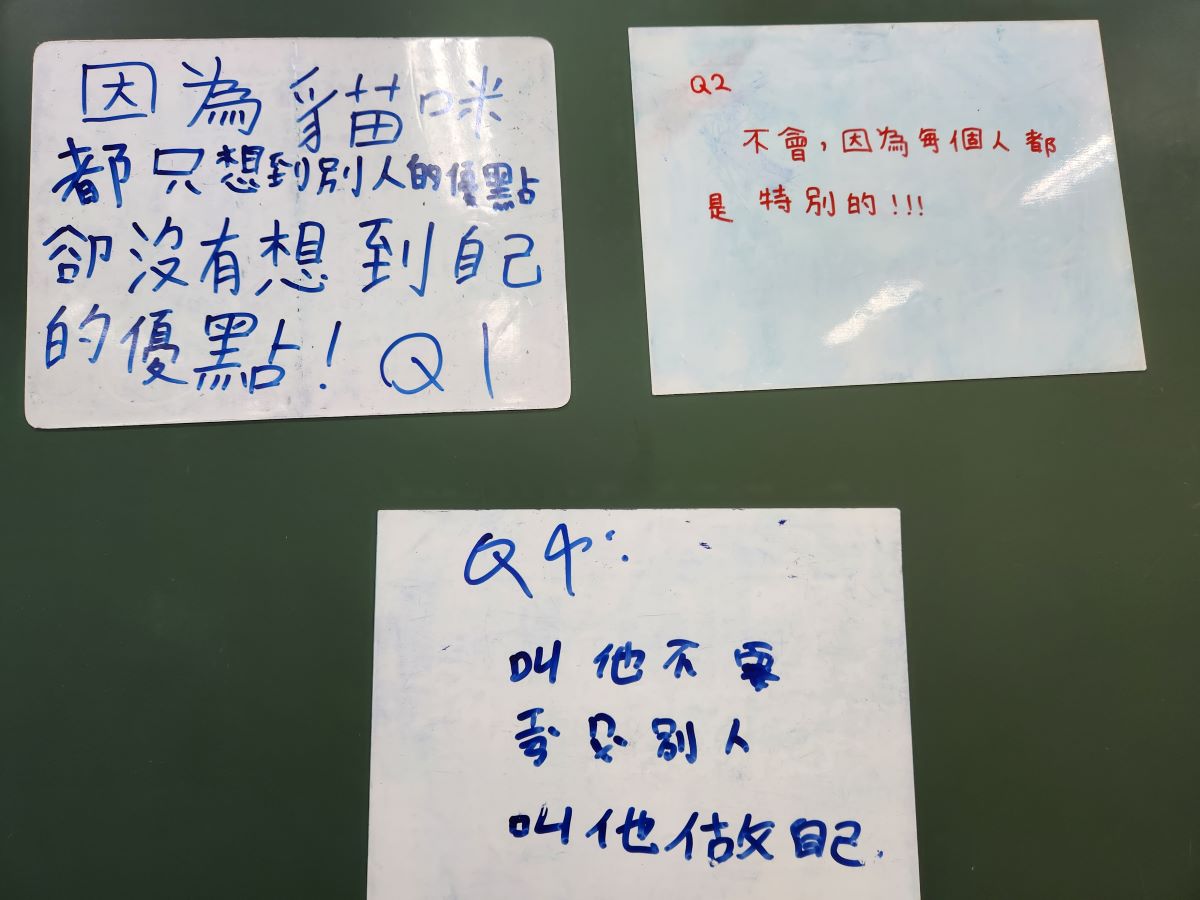 因為貓咪
都只想到別人的優點
卻沒有想到自己
的優點! Q1
Q2
不會,因為每個人都
是特別的!!!
Q4:
叫他不要
別人
叫他做自己.